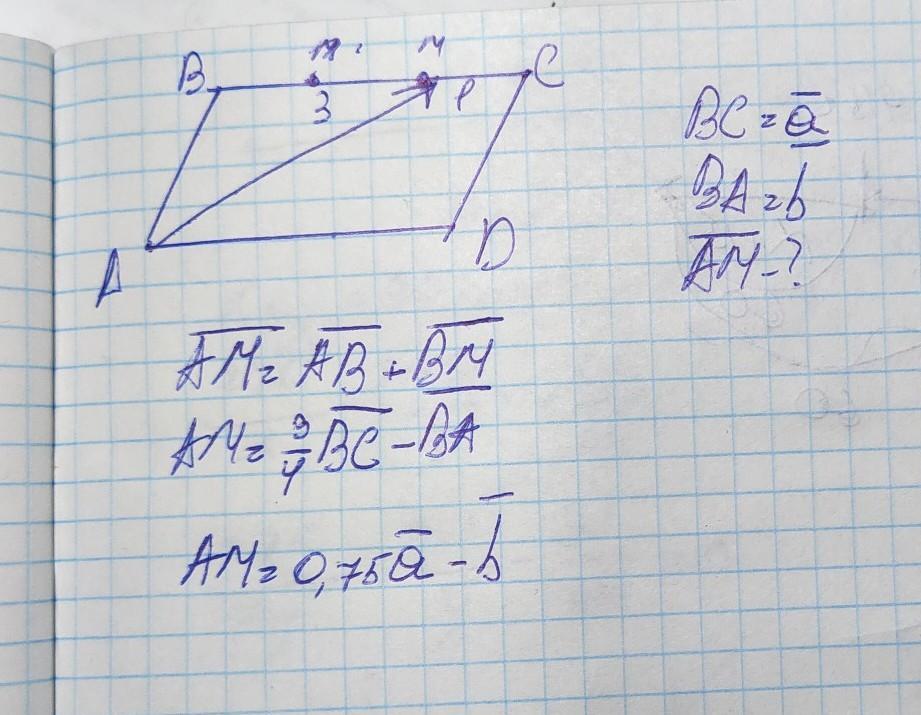 B M M C
3 1
A D
BC = a̅
BA = b
A̅M̅ - ?
A̅M̅ = A̅B̅ + B̅M̅
AM = 3/4 B̅C̅ - B̅A̅
AM = 0,75a̅ - b̅